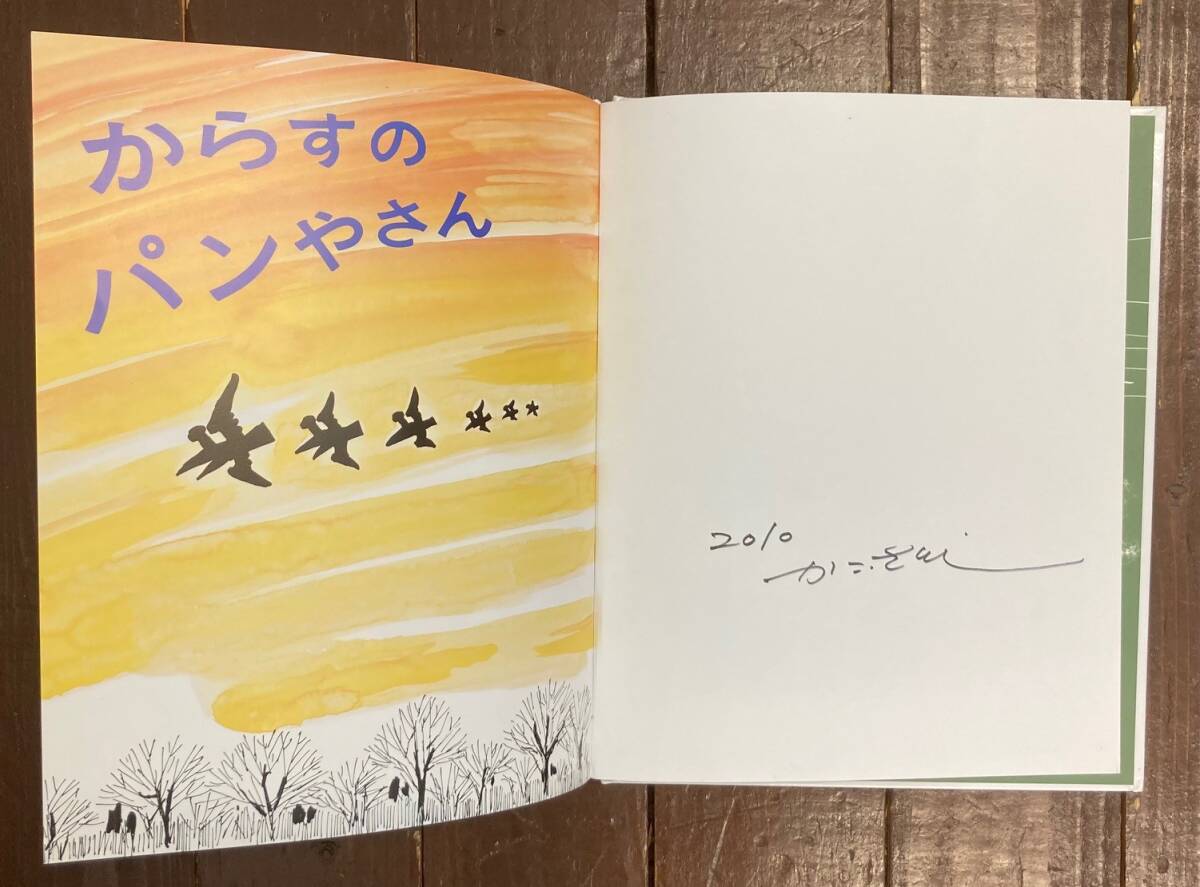 からすの
パンやさん
2010
かこさとし